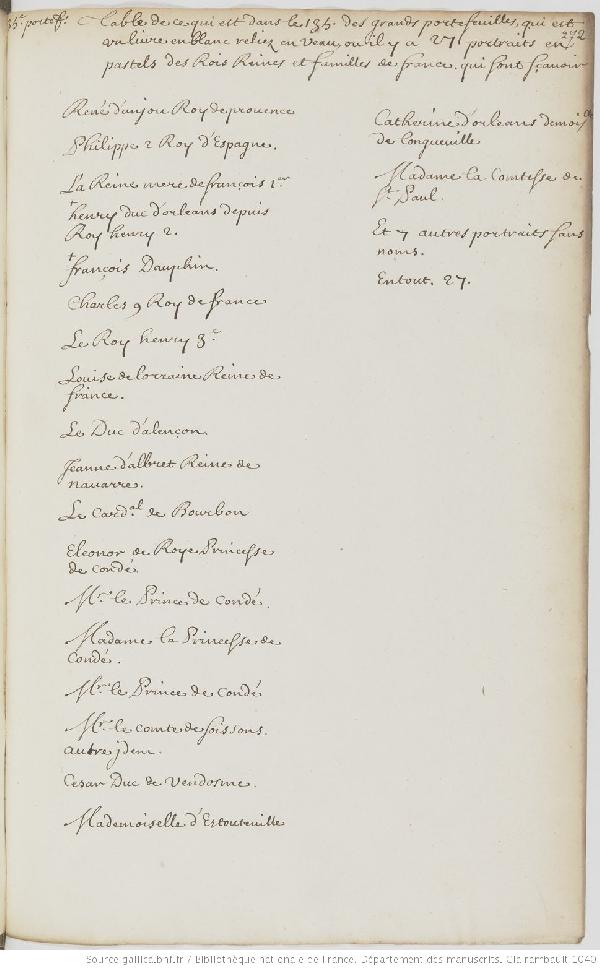 35.e portef. Table de ce qui est dans le 135. des grands portefeuilles, qui est
272
un livre en blanc reliez en veau, ou il y a 27 portraits en
pastels des Rois Reines et familles de france, qui sont sçavoir
René d'anjou Roy de provence
Philippe 2 Roy d'Espagne.
La Reine mere de françois 1.er
henry duc d'orleans depuis
Roy henry 2.
françois Dauphin.
Charles 9 Roy de france
Le Roy henry 3.e
Louise de lorraine Reine de
france.
Le Duc d'alençon
Jeanne d'albret Reine de
navarre.
Le Card.al de Bourbon
Eleonor de Roye Princesse
de condé
M.r le Prince de Condé.
Madame la Princesse de
Condé.
M.r le Prince de Condé
M.r le comte de soissons.
autre jdem.
Cesar Duc de Vendosme.
Mademoiselle d'Estouteuille
Catherine d'orleans demois.lle
de longueuille
Madame la Comtesse de
S.t Paul.
Et 7 autres portraits sans
noms.
En tout. 27.
Source gallica.bnf.fr / Bibliothèque nationale de France. Département des manuscrits. Clairambault 1040